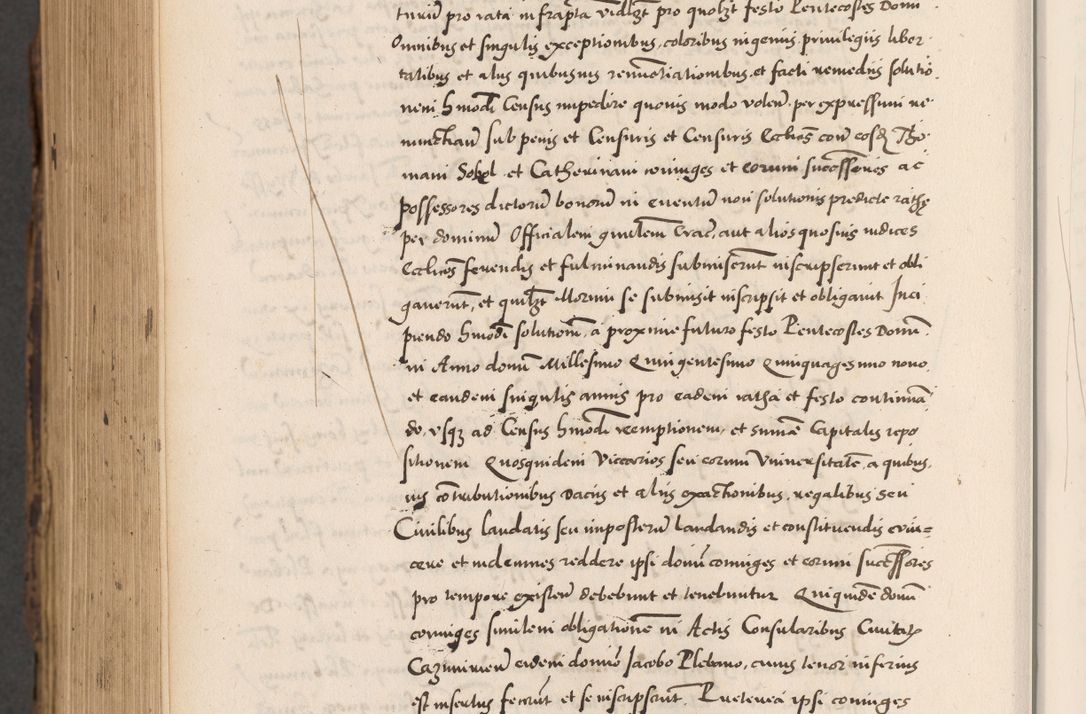 turim pro rata infrapta vidlzt pro quolzt festo Pentecostes Domi
Omnibus et singulis exceptionibus, coloribus ingeniis, privilegiis liber
tatibus et aliis quibusvis renuntiationibus et facti remediis solutio
nem hmodi Census impedire quovis modo volen. per expressum re
nunctian sub penis et Censuris et Censuris Ecclicas con eosd Tho
mam Sobol et Catherinam coniuges et eorum successores ac
possessores dictorum bonorum in eventum non solutionis predicte rathe
per dominum Officialem gnalem Crac, aut alios quosvis iudices
Ecclicos ferendis et fulminandis submiserunt inscripserunt et obli
gaverunt, et quilzt Morum se submisit inscripsit et obligavit Inci
piendo hmodi solutionem, a proxime futuro festo Pentecostes Domi
ni Anno domini Millesimo Quingentesimo Quinquagesimo nono
et eandem singulis annis pro eadem ratha et festo continuan
do, usq ad Census hmodi reemptionem, et summe Capitalis repo
sitionem Quosquidem Viccarios seu eorum Universitatem, a quibus
vis contributionibus Daciis et aliis exactionibus, regalibus seu
Civilibus laudatis seu imposterum laudandis et constituendis evin=
cere et indemnes reddere ipsi domini coniuges et eorum successores
pro tempore existen debebunt et tenebuntur Quiquidem domini
coniuges similem obligationem in Actis Consularibus Civitatis
Cazimirien eidem domino Jacobo Plebano, cuius tenor inferius
est insertus fecerunt et se inscripserunt. Preterea ipsi coniuges